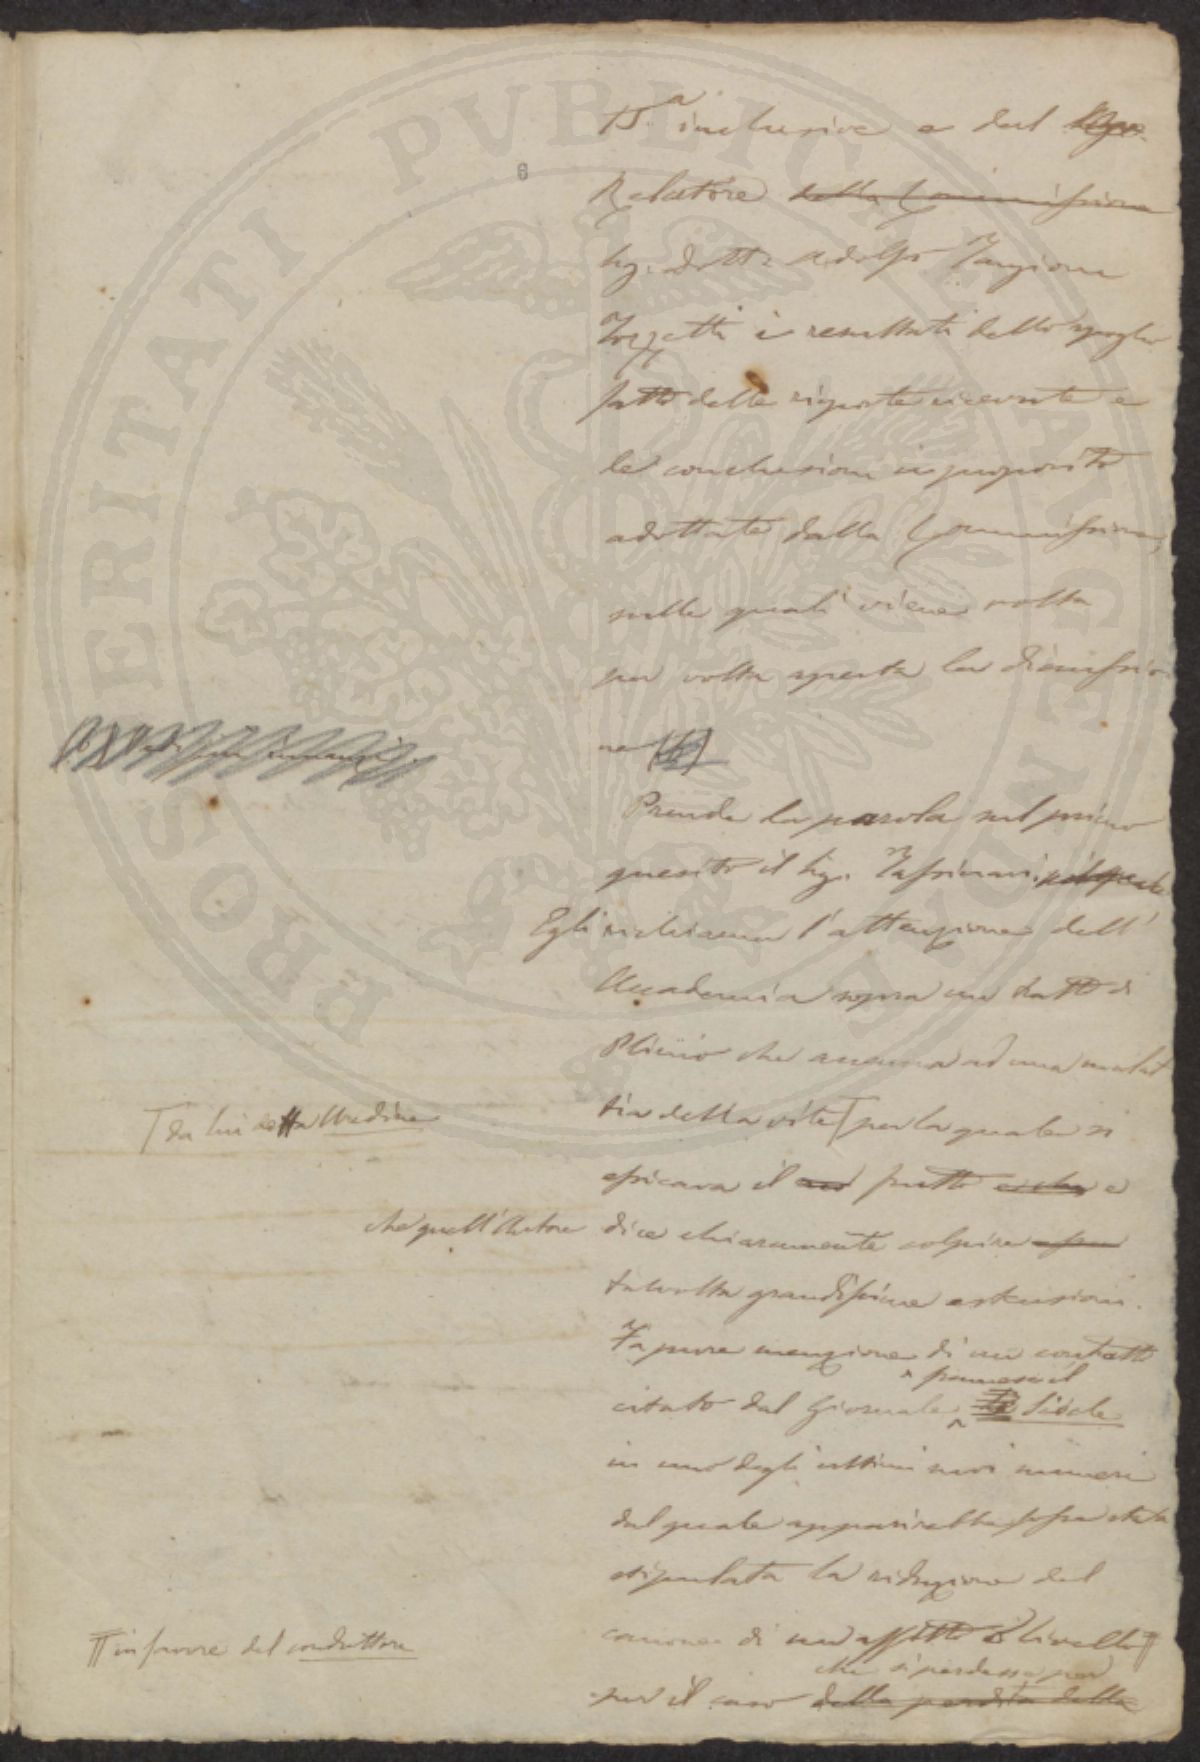 15.a inclusive e dal
Relatore della Commissione
Sig. Dott. Adolfo Targioni
Tozzetti i resultati dello spoglio
fatto delle risposte ricevute e
le conclusioni in proposito
adottate dalla Commissione,
sulle quali viene volta
per volta aperta la discussio
ne (6)
Prende la parola sul primo
quesito il Sig. Tassinari
Egli richiama l'attenzione dell'
Accademia sopra un tratto di
Plinio che accenna ad una malat
[da lui detta Uredine
tia della vite [per la quale si
essicava il suo frutto e che e
che quell'Autore
dice chiaramente colpire
talvolta grandissime estensioni.
Fa pure menzione di un contratto
francese il
citato dal Giornale Siècle
in uno degli ultimi suoi numeri
dal quale apparirebbe essere stata
stipulata la riduzione del
canone di un affitto o livello
in favore del conduttore
che si perdesse per
per il caso della perdita della
6
PUBLICAE
PROSPERITATI
AUGENDAE